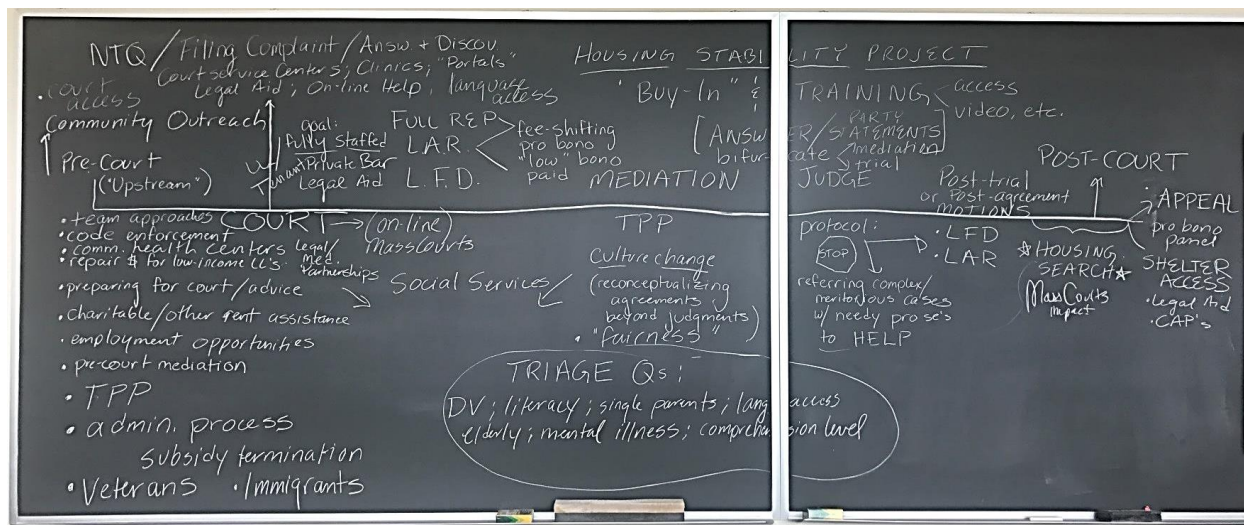 NTQ / Filing Complaint / Answ. + Discov
Court service Centers; Clinics; "Portals"
Legal Aid; On-line Help, language access
• court access
Community Outreach
Pre-Court
("Upstream")
goal:
fully staffed
Tenant Private Bar
Legal Aid
FULL REP
L.A.R.
L.F.D.
fee-shifting
pro bono
"low" bono
paid
HOUSING STABILITY PROJECT
"Buy-In" &
TRAINING
access
video, etc.
[ANSWER/PARTY STATEMENTS]
bifurcate
mediation
trial
MEDIATION
JUDGE
Post-trial
or Post-agreement
MOTIONS
POST-COURT
COURT → (on-line)
MassCourts
• team approaches
• code enforcement
• comm. health centers
legal/med. partnerships
• repair $ for low-income LL's.
• preparing for court/advice
• charitable/other rent assistance
• employment opportunities
• pre-court mediation
• TPP
• admin. process
subsidy termination
• Veterans • Immigrants
Social Services
TPP
Culture change
(reconceptualizing
agreements
beyond judgments)
• "fairness"
protocol:
STOP
• LFD
• LAR
referring complex/
meritorious cases
w/ needy pro se's
to HELP
*HOUSING
SEARCH*
MassCourts
impact
• APPEAL
pro bono
panel
SHELTER
ACCESS
• legal Aid
• CAP's
TRIAGE Qs:
DV; literacy; single parents; lang access
elderly; mental illness; comprehension level